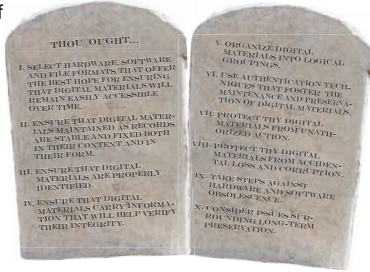 f
THOU OUGHT...
I. SELECT HARDWARE, SOFTWARE
AND FILE FORMATS THAT OFFER
THE BEST HOPE FOR ENSURING
THAT DIGITAL MATERIALS WILL
REMAIN EASILY ACCESSIBLE
OVER TIME.
II. ENSURE THAT DIGITAL MATER-
IALS MAINTAINED AS RECORDS
ARE STABLE AND FIXED BOTH
IN THEIR CONTENT AND IN
THEIR FORM.
III. ENSURE THAT DIGITAL
MATERIALS ARE PROPERLY
IDENTIFIED.
IV. ENSURE THAT DIGITAL
MATERIALS CARRY INFORMA-
TION THAT WILL HELP VERIFY
THEIR INTEGRITY.
V. ORGANIZE DIGITAL
MATERIALS INTO LOGICAL
GROUPINGS.
VI. USE AUTHENTICATION TECH-
NIQUES THAT FOSTER THE
MAINTENANCE AND PRESERVA-
TION OF DIGITAL MATERIALS.
VII. PROTECT THY DIGITAL
MATERIALS FROM UNATH-
ORIZED ACTION.
VIII. PROTECT THY DIGITAL
MATERIALS FROM ACCIDEN-
TAL LOSS AND CORRUPTION.
IX. TAKE STEPS AGAINST
HARDWARE AND SOFTWARE
OBSOLESCENCE.
X. CONSIDER ISSUES SUR-
ROUNDING LONG-TERM
PRESERVATION.